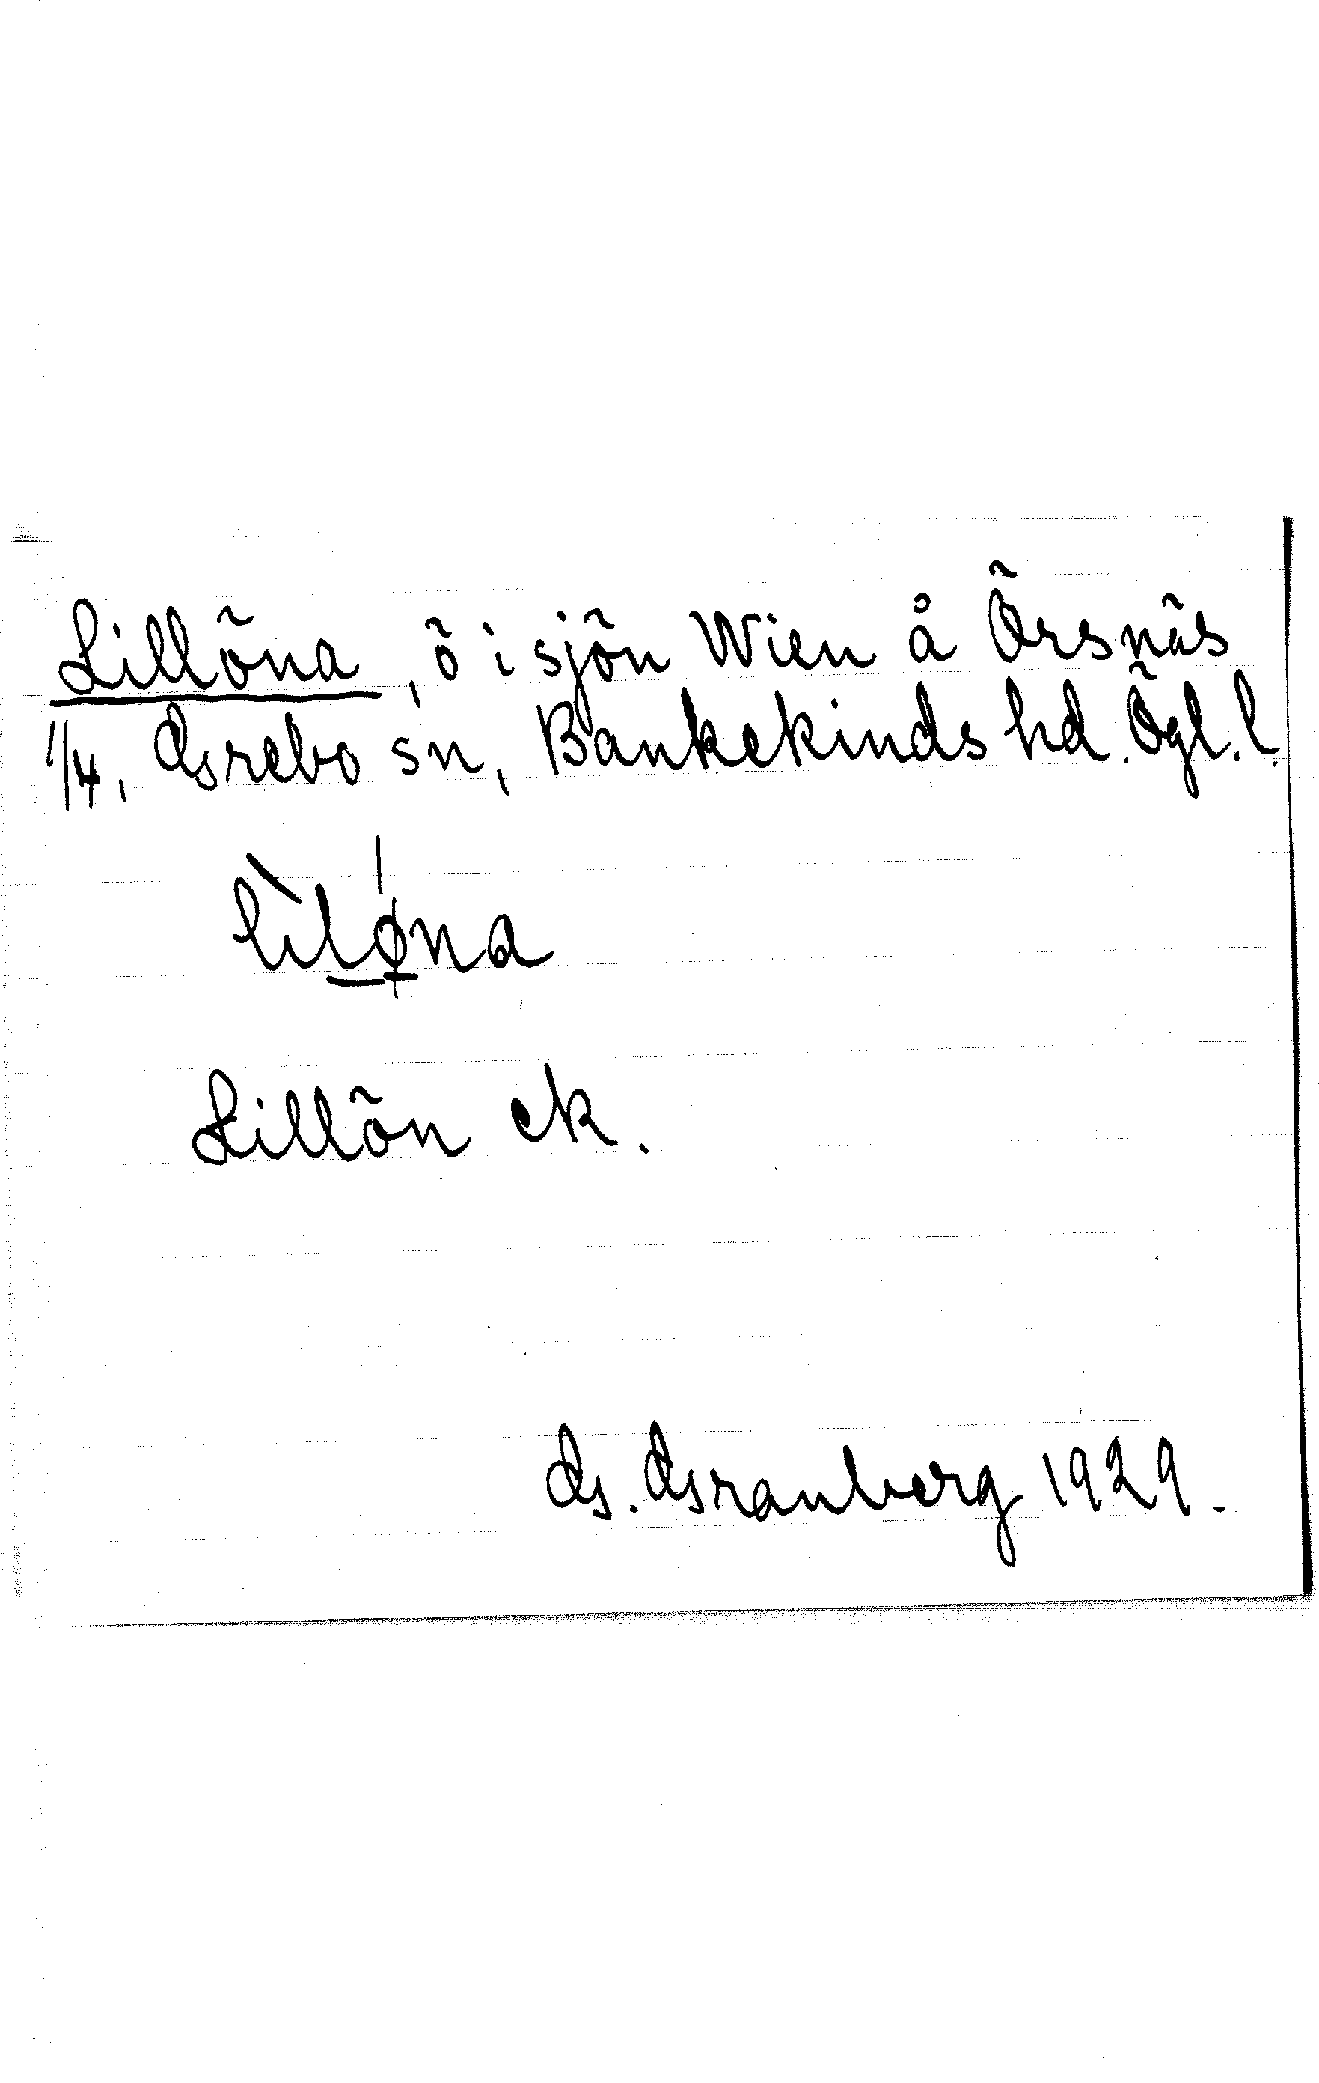 Lillöna, ö i sjön Wien å Örsnäs
1/4, Grebo sn, Bankekinds hd. Ögl. l.
lìløna
Lillön ek.
G. Granberg 1929.